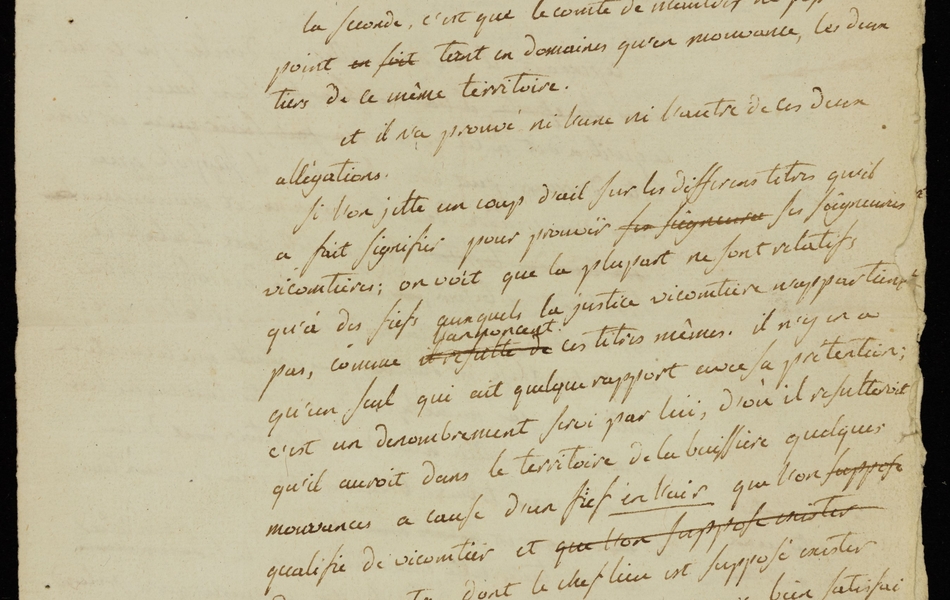 la seconde, c'est que le comte de
point en fait tant en domaines qu'en mouvance, les deux
tiers de ce même territoire.
et il n'a prouvé ni l'une ni l'autre de ces deux
allégations.
Si l'on jette un coup d'œil sur les differens titres qu'il
a fait signifier pour prouver ses seigneuries ses seigneuries
vicomtieres; on voit que la plupart ne sont relatifs
qu'à des fiefs auxquels la justice vicomtiere n'appartient
l'annoncent
pas, comme il resulte de ces titres mêmes. il n'y en a
qu'un seul qui ait quelque rapport avec sa prétention;
c'est un denombrement servi par lui, d'où il resulteroit
qu'il auroit dans le territoire de la buissiere quelques
mouvances a cause d'un fief en l'air que l'on suppose
qualifié de vicomtier et que l'on suppose exister
dont le chef lieu est supposé exister
bien satisfai